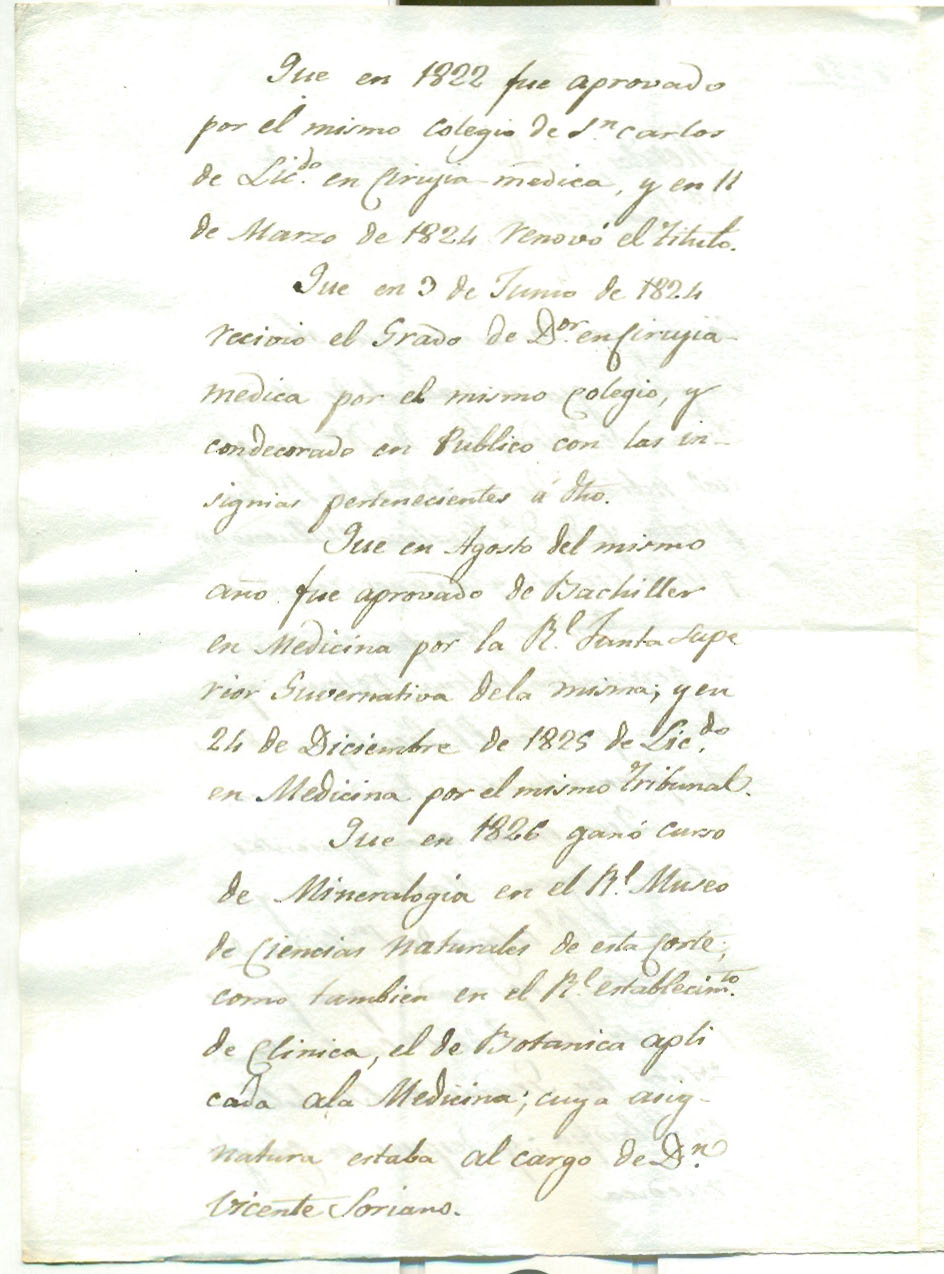 Que en 1822 fue aprovado
por el mismo colegio de Sn. Carlos
de Lic.do en Cirujia medica, y en 11
de Marzo de 1824 renovó el Titulo.
Que en 3 de Junio de 1824
recivio el Grado de D.or en Cirujia
medica por el mismo Colegio, y
condecorado en Publico con las in-
signias pertenecientes á dho.
Que en Agosto del mismo
año fue aprovado de Bachiller
en Medicina por la R.l Junta Supe
rior Guvernativa dela misma; y en
24 de Diciembre de 1825 de Lic.do
en Medicina por el mismo Tribunal.
Que en 1826 ganó curso
de Mineralogia en el R.l Museo
de Ciencias naturales de esta Corte;
como tambien en el R.l establecim.to
de Clinica, el de Botanica apli
cada ala Medicina; cuya asig-
natura estaba al cargo de D.n
Vicente Soriano.